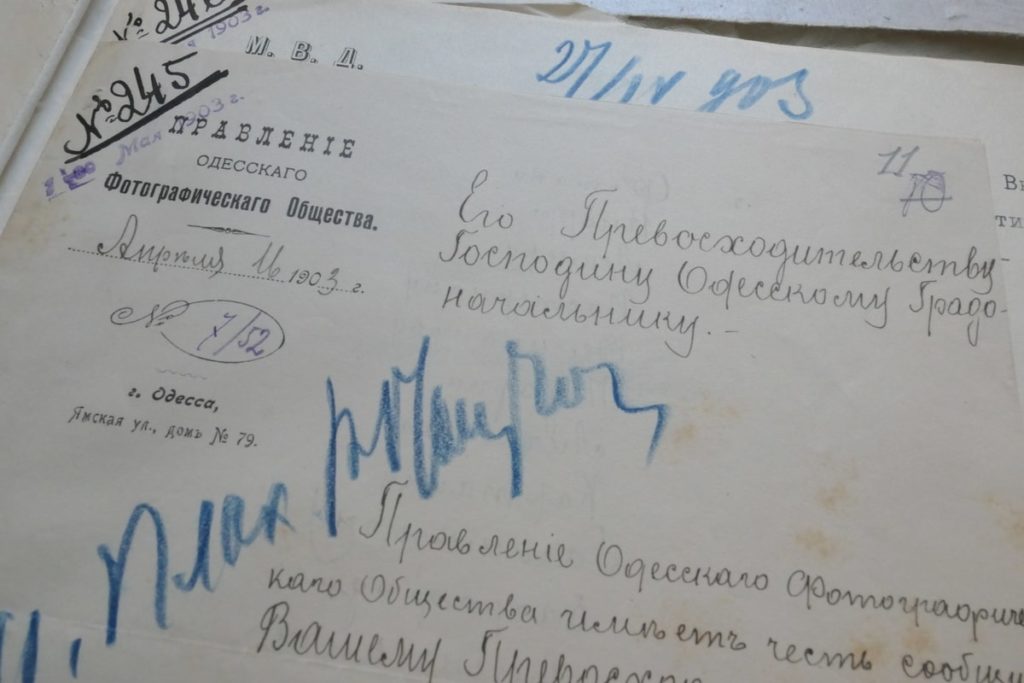 № 246
1903 г.
М. В. Д.
27/IV 903
№ 245
Мая 1903 г.
ПРАВЛЕНІЕ
ОДЕССКАГО
Фотографическаго Общества.
Апрѣля 16 1903 г.
№ 7/52
г. Одесса,
Ямская ул., домъ № 79.
11
Его Превосходительству
Господину Одесскому Градо-
начальнику.-
Правленіе Одесскаго Фотографичес
каго Общества имѣетъ честь сообщи
Вашему Превосхо